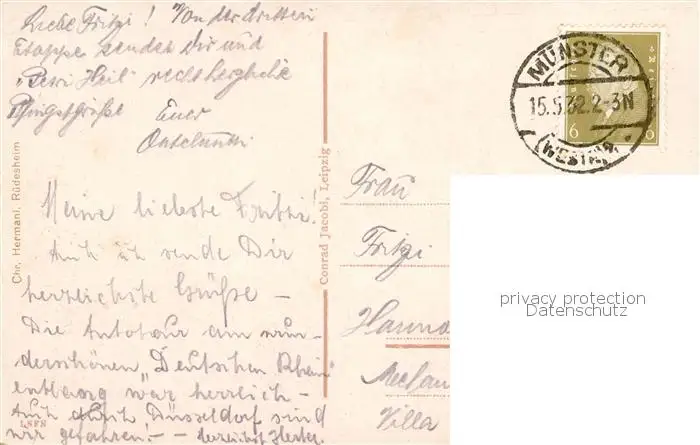 Liebe Fritzi! Von der dritten
Etappe sendet Dir und
"Petri Heil" recht herzliche
Pfingstgrüße Euer
Meine liebste Fritzi!
Auch ich sende Dir
herzlichste Grüße –
Die Autotour am wun-
derschönen "Deutschen Rhein"
entlang war herrlich –
Auch durch Düsseldorf sind
wir gefahren! –
Chr. Hermani, Rüdesheim
Conrad Jacobi, Leipzig
MÜNSTER
15.5.32.2-3N
(WESTF.)
6 6
Frau
Fritzi
Hanno
Villa
privacy protection
Datenschutz